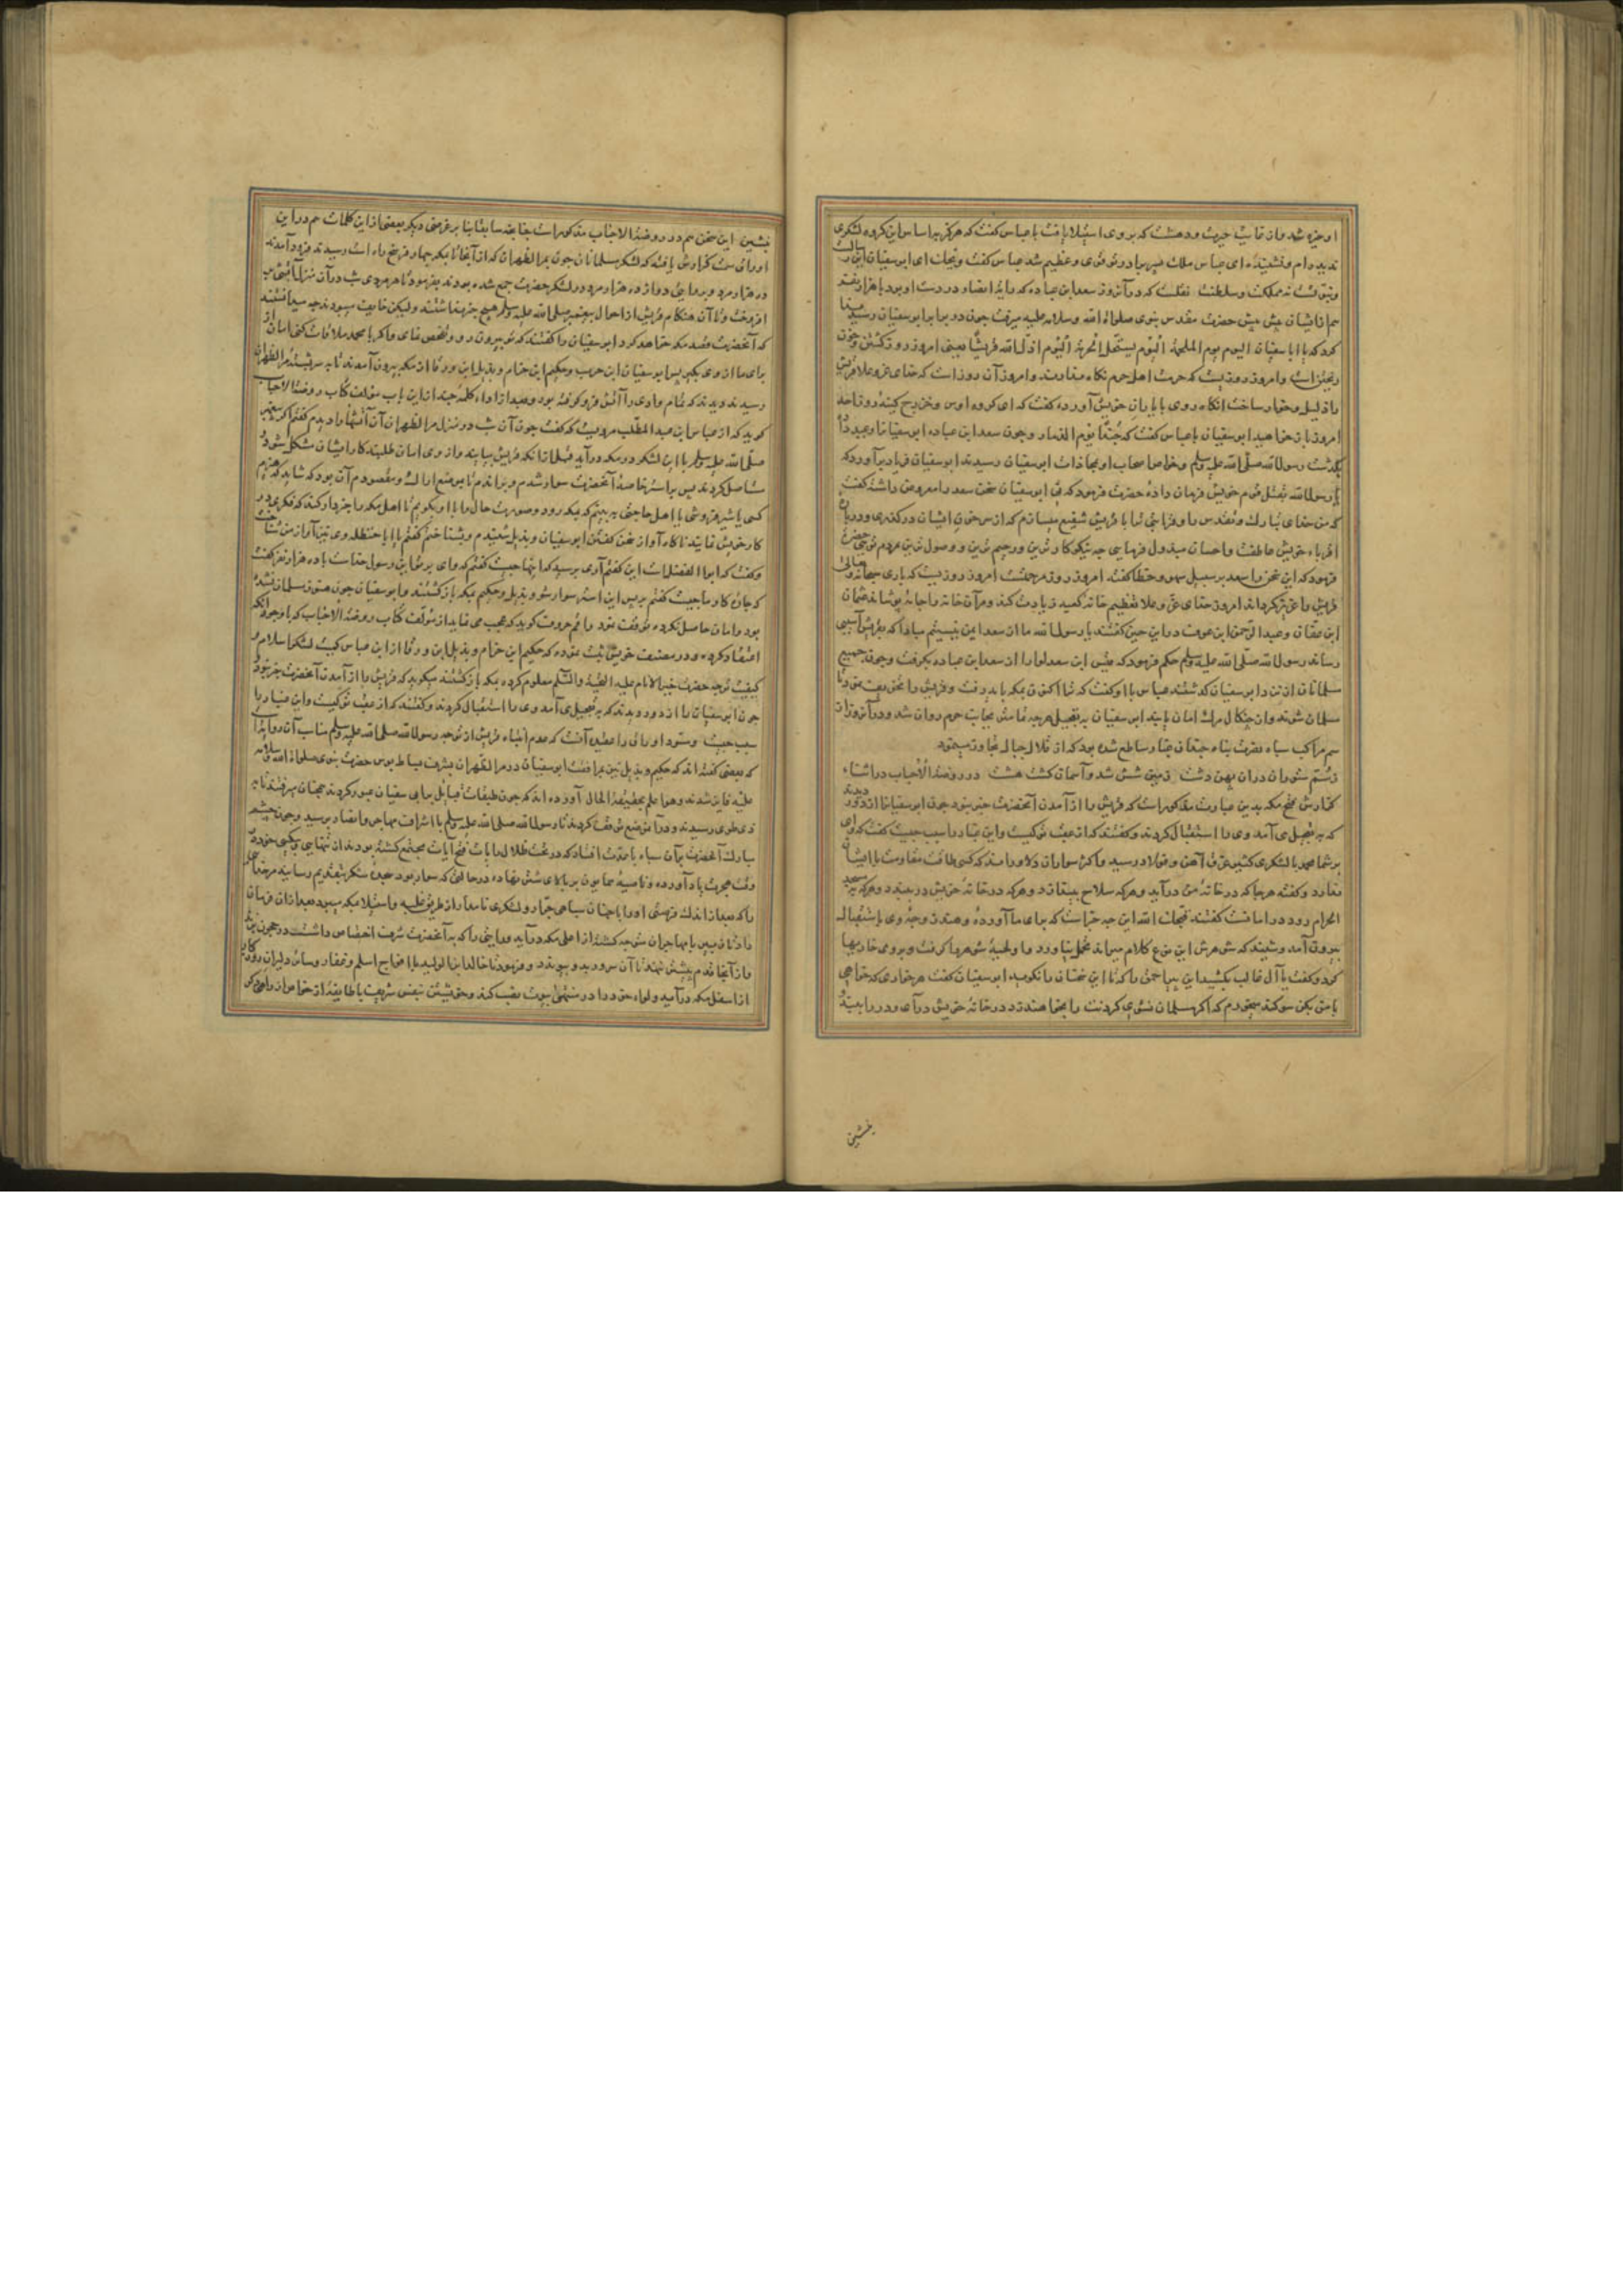 او خیره شد و از غایت حیرت و دهشت که بر وی استیلا یافت با عباس گفت که هرگز به اساس این گروه لشکری
ندیده‌ام و نشنیده ای عباس ملک پسر برادر تو قوی و عظیم شد عباس گفت ویحک ای ابو سفیان این رسالت
و نبوتست نه مملکت و سلطنت نقلست که در آن روز سعد ابن عباده که رایهٔ انصار در دست او بود با هزار نفر
هم از ایشان پیش پیش حضرت مقدس نبوی صلواة الله و سلامه علیه میرفت چون در برابر ابو سفیان رسید ندا
کرد که یا ابا سفیان الیوم یوم الملحمة الیوم یستحل الحرمة الیوم اذل الله قریشا یعنی امروز روز کشتن و خون
ریختن است و امروز روزیست که حرمت اهل حرم نگاه ندارند و امروز آن روز است که خدای عز و علا قریش
را ذلیل و خوار ساخت انگاه روی با یاران خویش آورده گفت که ای گروه اوس و خزرج کینهٔ روز احد
امروز باز خواهید ابو سفیان با عباس گفت که حبذا یوم الذمار و چون سعد ابن عباده ابو سفیان را وعید داد
بگذشت رسول الله صلی الله علیه وسلم و خواص اصحاب او بمحاذات ابو سفیان رسیدند ابو سفیان فریاد برآورد که
یا رسول الله بقتل قوم خویش فرمان دادهٔ حضرت فرمود که نی ابو سفیان سخن سعد را معروض داشته گفت
که من خدای تبارک و تقدس را و قرابتی ترا با قریش شفیع میسازم که از سر خون ایشان درگذری و در باره
اقرباء خویش عاطفت و احسان مبذول فرمایی چه نیکوکارترین و رحیم‌ترین و وصول‌ترین مردم تویی حضرت
فرمود که این سخن را سعد بر سبیل سهو و خطا گفته امروز روز مرحمتست امروز روزیست که باری سبحانه و تعالی
قریش را عزیز گرداند امروز خدای عز و علا تعظیم خانهٔ کعبه زیادت کند و مر آن خانه را جامه پوشاند عثمان
ابن عفان و عبد الرحمن ابن عوف در این حین گفتند یا رسول الله ما از سعد ایمن نیستیم مبادا که بقریش آسیبی
رساند رسول الله صلی الله علیه وسلم حکم فرمود که قیس ابن سعد لوا را از سعد ابن عباده بگرفت و چون جمیع
مسلمانان از نزد ابو سفیان گذشتند عباس با او گفت که ترا اکنون بمکه باید رفت و قریش را تخویف نمود تا
مسلمان شوند و از چنگال مرگ امان یابند ابو سفیان به تعجیل هرچه تمامتر بجانب حرم روان شد و در آن روز از
سم مراکب سپاه نصرت پناه چندان غبار ساطع شده بود که از قلال جبال تجاوز مینمود
ز سم ستوران دران پهن دشت زمین شش شد و آسمان گشت هشت در روضة الاحباب در اثناء
گذارش فتح مکه بدین عبارت مذکور است که قریش را از آمدن آنحضرت خبر نبود چون ابو سفیان را از دور دیدند
که به تعجیل می آمد وی را استقبال کردند و گفتند که از عقب تو کیست و این غبار را سبب چیست گفت که وای
بر شما محمد با لشکری کثیر غرق آهن و فولاد رسید و اکثر سواران دلاورانند که کسی طاقت مقاومت با ایشان
ندارد و گفته هر جا که در خانهٔ من درآید و هر که سلاح بیندازد و هر که در خانهٔ خویش در ببندد و هر که به مسجد
الحرام رود در امانست گفتند قبحک الله این چه خبر است که برای ما آوردهٔ و هند زوجهٔ وی باستقبال
بیرون آمد و شنید که شوهرش این نوع کلام میراند تحمل نیاورد و لحیهٔ شوهر را گرفت و بر وی خواریها
کرد و گفت یا آل غالب بکشید این پیر احمق را که تا این سخنان را نگوید ابو سفیان گفت هر خواری که خواهی
با من بکن سوگند میخورم که اگر مسلمان نشوی گردنت را بخواهند زد در خانهٔ خویش درآی و در را ببند و
بنشین
بنشین این سخن هم در روضة الاحباب مذکور است چنانچه سابقا بنا بر غرضی دیگر بعضی از این کلمات هم در این
اوراق سمت گذارش یافته که لشکر مسلمانان چون بمر الظهران که از آنجا تا بمکه چهار فرسخ راه است رسیدند فرود آمدند
ده هزار مرد و بروایتی دوازده هزار مرد در لشکر حضرت جمع شده بودند بفرمود تا هر مردی شب در آن منزل آتشی بر
افروخت و تا آن هنگام قریش از احوال پیغمبر صلی الله علیه وسلم هیچ خبر نداشتند ولیکن خایف میبودند چه میدانستند
که آنحضرت قصد مکه خواهد کرد ابو سفیان را گفتند که تو بیرون رو و تفحص نمای و اگر با محمد ملاقات کنی امان از
برای ما از وی بگیر پس ابو سفیان ابن حرب و حکیم ابن حزام و بدیل ابن ورقا از مکه بیرون آمدند تا به سر پشتهٔ مر الظهران
رسیدند دیدند که تمام وادی را آتش فرو گرفته بود و بعد از اداء کلمهٔ چند از این باب مؤلف کتاب روضة الاحباب
گوید که از عباس ابن عبد المطلب مرویست که گفت چون آن شب در منزل مر الظهران آن آتشها را دیدم گفتم اگر پیغمبر
صلی الله علیه وسلم با این لشکر در مکه درآید قبل از آنکه قریش بیایند و از وی امان طلبند کار ایشان مشکل شود و
مستاصل گردند پس بر استر خاصهٔ آنحضرت سوار شدم و براندم تا بموضع اراک و مقصودم آن بود که شاید که هیزم
کسی یا شیرفروشی یا اهل حاجتی به بینم که بمکه رود و صورت حال را با او بگویم تا اهل مکه را خبردار کند که فکری در
کار خویش نمایند ناگاه آواز سخن گفتن ابو سفیان و بدیل شنیدم و بشناختم گفتم یا ابا حنظله وی نیز آواز من بشناخت
و گفت که ابو الفضل است این گفتم آری پرسید که اینها چیست گفتم که وای بر تو این رسول خداست با ده هزار نفر گفت
که چارهٔ کار ما چیست گفتم بر پس این استر سوار شو و بدیل و حکیم بمکه بازگشتند و ابو سفیان چون هنوز مسلمان نشده
بود و امان حاصل نکرده توقف نمود راقم حروف گوید که عجب می نماید از مؤلف کتاب روضة الاحباب که با وجود آنکه
اعتقاد کرده و در مصنف خویش ثبت نموده که حکیم ابن حزام و بدیل ابن ورقا از ابن عباس کمیت لشکر اسلام و
کیفیت توجه حضرت خیر الانام علیه التحیة والسلام معلوم کرده بمکه بازگشتند میگوید که قریش را از آمدن آنحضرت خبر نبود
چون ابو سفیان را از دور دیدند که به تعجیل می آمد وی را استقبال کردند و گفتند که از عقب تو کیست و این غبار را
سبب چیست و مسود اوراق را عقیده آنست که عدم انتباه قریش از توجه رسول الله صلی الله علیه وسلم مناسب آن روایتست
که بعضی گفته اند که حکیم و بدیل نیز بمرافقت ابو سفیان در مر الظهران بشرف بساط بوس حضرت نبوی صلواة الله و سلامه
علیه فایز شدند و هو اعلم بحقیقة الحال آورده اند که چون طبقات قبایل بر ابی سفیان عبور کردند همچنان میرفتند تا به
ذی طوی رسیدند و در آن موضع توقف کردند تا رسول الله صلی الله علیه وسلم با اشراف مهاجر و انصار برسید و چون چشم
مبارک آنحضرت بر آن سپاه با عدت افتاد که در تحت ظلال رایات فتح آیات مجتمع گشته بودند از تنهایی و بیکسی خود در
وقت هجرت یاد آورده و ناصیهٔ همایون بر بالای شتر نهاده در حالتی که سوار بود سجدهٔ شکر بتقدیم رسانید مر خدای
را که بعد از اندک فرصتی او را با چنان سپاهی جرار و لشکری نامدار از طریق غلبه و استیلا بمکه میبرد بعد از آن فرمان
داد تا زبیر با مهاجران متوجه گشته از اعلی مکه درآید و رایتی را که به آنحضرت شرف اختصاص داشت در حجون نزند
و از آنجا قدم پیشتر ننهد تا آن سرور بدو پیوندد و فرمود تا خالد ابن الولید با افواج اسلم و غفار و سائر دلیران روزگار
از اسفل مکه درآید و لواء خود را در منتهی بیوت نصب کند و خویشتن بنفس شریف با طایفهٔ از خواص از راهی که